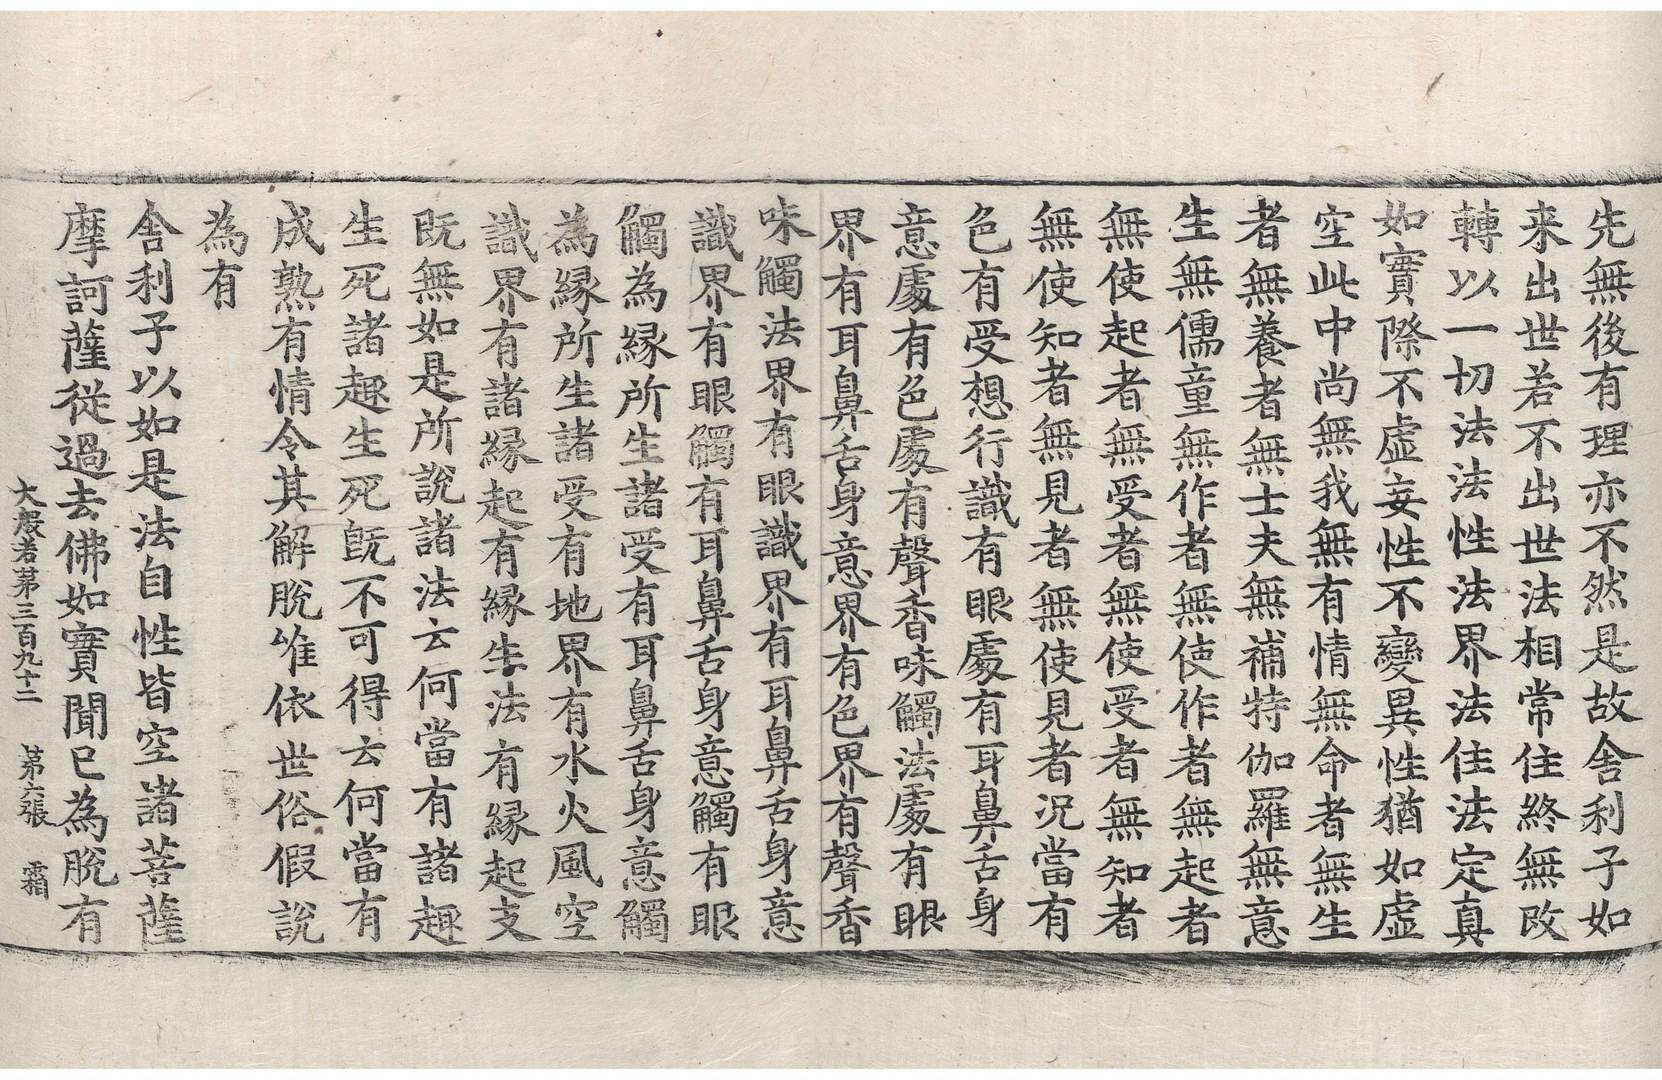 先無後有理亦不然是故舍利子如
来出世若不出世法相常住終無改
轉以一切法法性法界法住法定真
如實際不虛妄性不變異性猶如虛
空此中尚無我無有情無命者無生
者無養者無士夫無補特伽羅無意
生無儒童無作者無使作者無起者
無使起者無受者無使受者無知者
無使知者無見者無使見者況當有
色有受想行識有眼處有耳鼻舌身
意處有色處有聲香味觸法處有眼
界有耳鼻舌身意界有色界有聲香
味觸法界有眼識界有耳鼻舌身意
識界有眼觸有耳鼻舌身意觸有眼
觸為緣所生諸受有耳鼻舌身意觸
為緣所生諸受有地界有水火風空
識界有諸緣起有緣生法有緣起支
既無如是所說諸法云何當有諸趣
生死諸趣生死既不可得云何當有
成熟有情令其解脫唯依世俗假說
為有
舍利子以如是法自性皆空諸菩薩
摩訶薩從過去佛如實聞已為脫有
大般若第三百九十二 第六張 霜